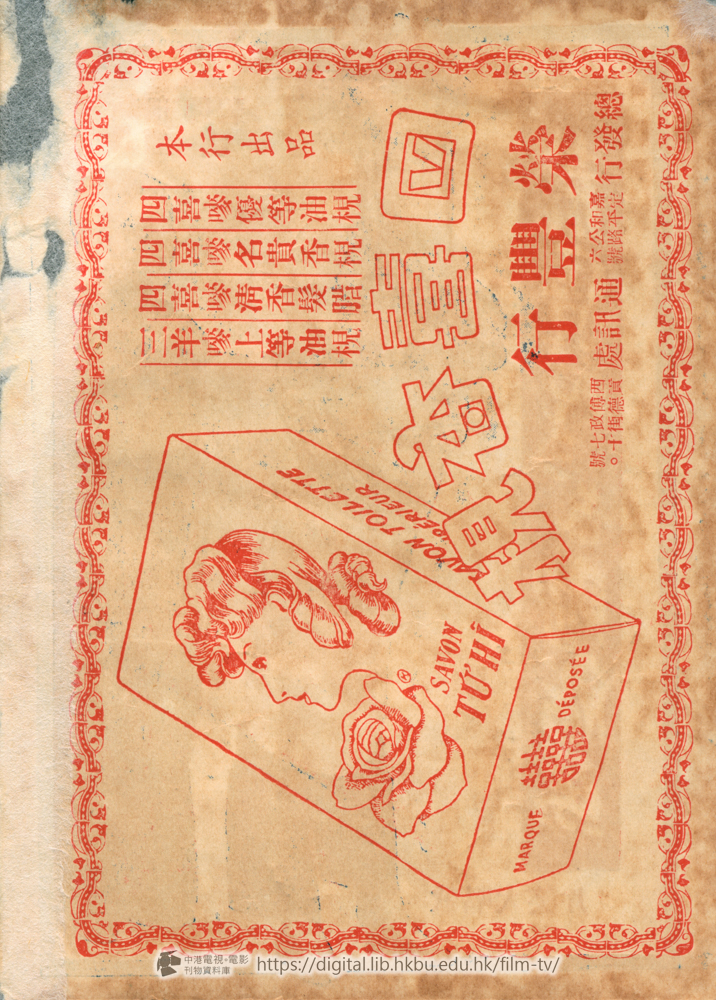 總發行 嘉定和平公路六號
通訊處 西貢傅德政街七十號。
榮豐行
四喜香梘
本行出品
四喜嘜優等油梘
四喜嘜名貴香梘
四喜嘜清香髮腊
三羊嘜上等油梘
SAVON TOILETTE
SAVON
TỨ HÎ
MARQUE DÉPOSÉE
中港電視•電影
刊物資料庫
https://digital.lib.hkbu.edu.hk/film-tv/